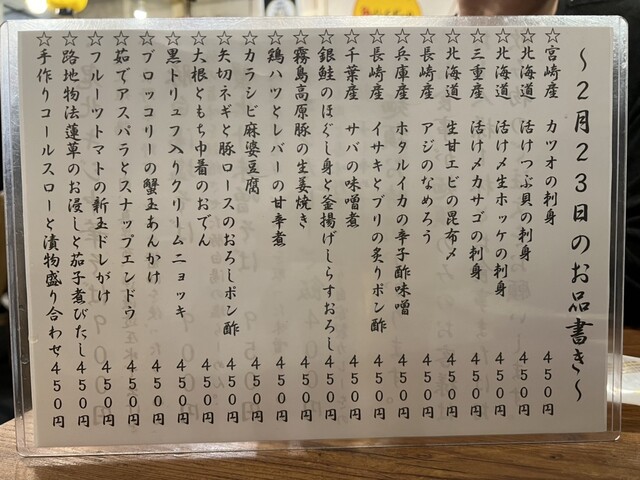 ～2月23日のお品書き～
☆宮崎産 カツオの刺身 450円
☆北海道 活けつぶ貝の刺身 450円
☆北海道 活け〆生ホッケの刺身 450円
☆三重産 活け〆カサゴの刺身 450円
☆北海道 生甘エビの昆布〆 450円
☆長崎産 アジのなめろう 450円
☆兵庫産 ホタルイカの辛子酢味噌 450円
☆長崎産 イサキとブリの炙りポン酢 450円
☆千葉産 サバの味噌煮 450円
☆銀鮭のほぐし身と釜揚げしらすおろし 450円
☆霧島高原豚の生姜焼き 450円
☆鶏ハツとレバーの甘辛煮 450円
☆カラシビ麻婆豆腐 450円
☆矢切ネギと豚ロースのおろしポン酢 450円
☆大根ともち巾着のおでん 450円
☆黒トリュフ入りクリームニョッキ 450円
☆ブロッコリーの蟹玉あんかけ 450円
☆茹でアスパラとスナップエンドウ 450円
☆フルーツトマトの新玉ドレがけ 450円
☆路地物法蓮草のお浸しと茄子煮びたし 450円
☆手作りコールスローと漬物盛り合わせ 450円